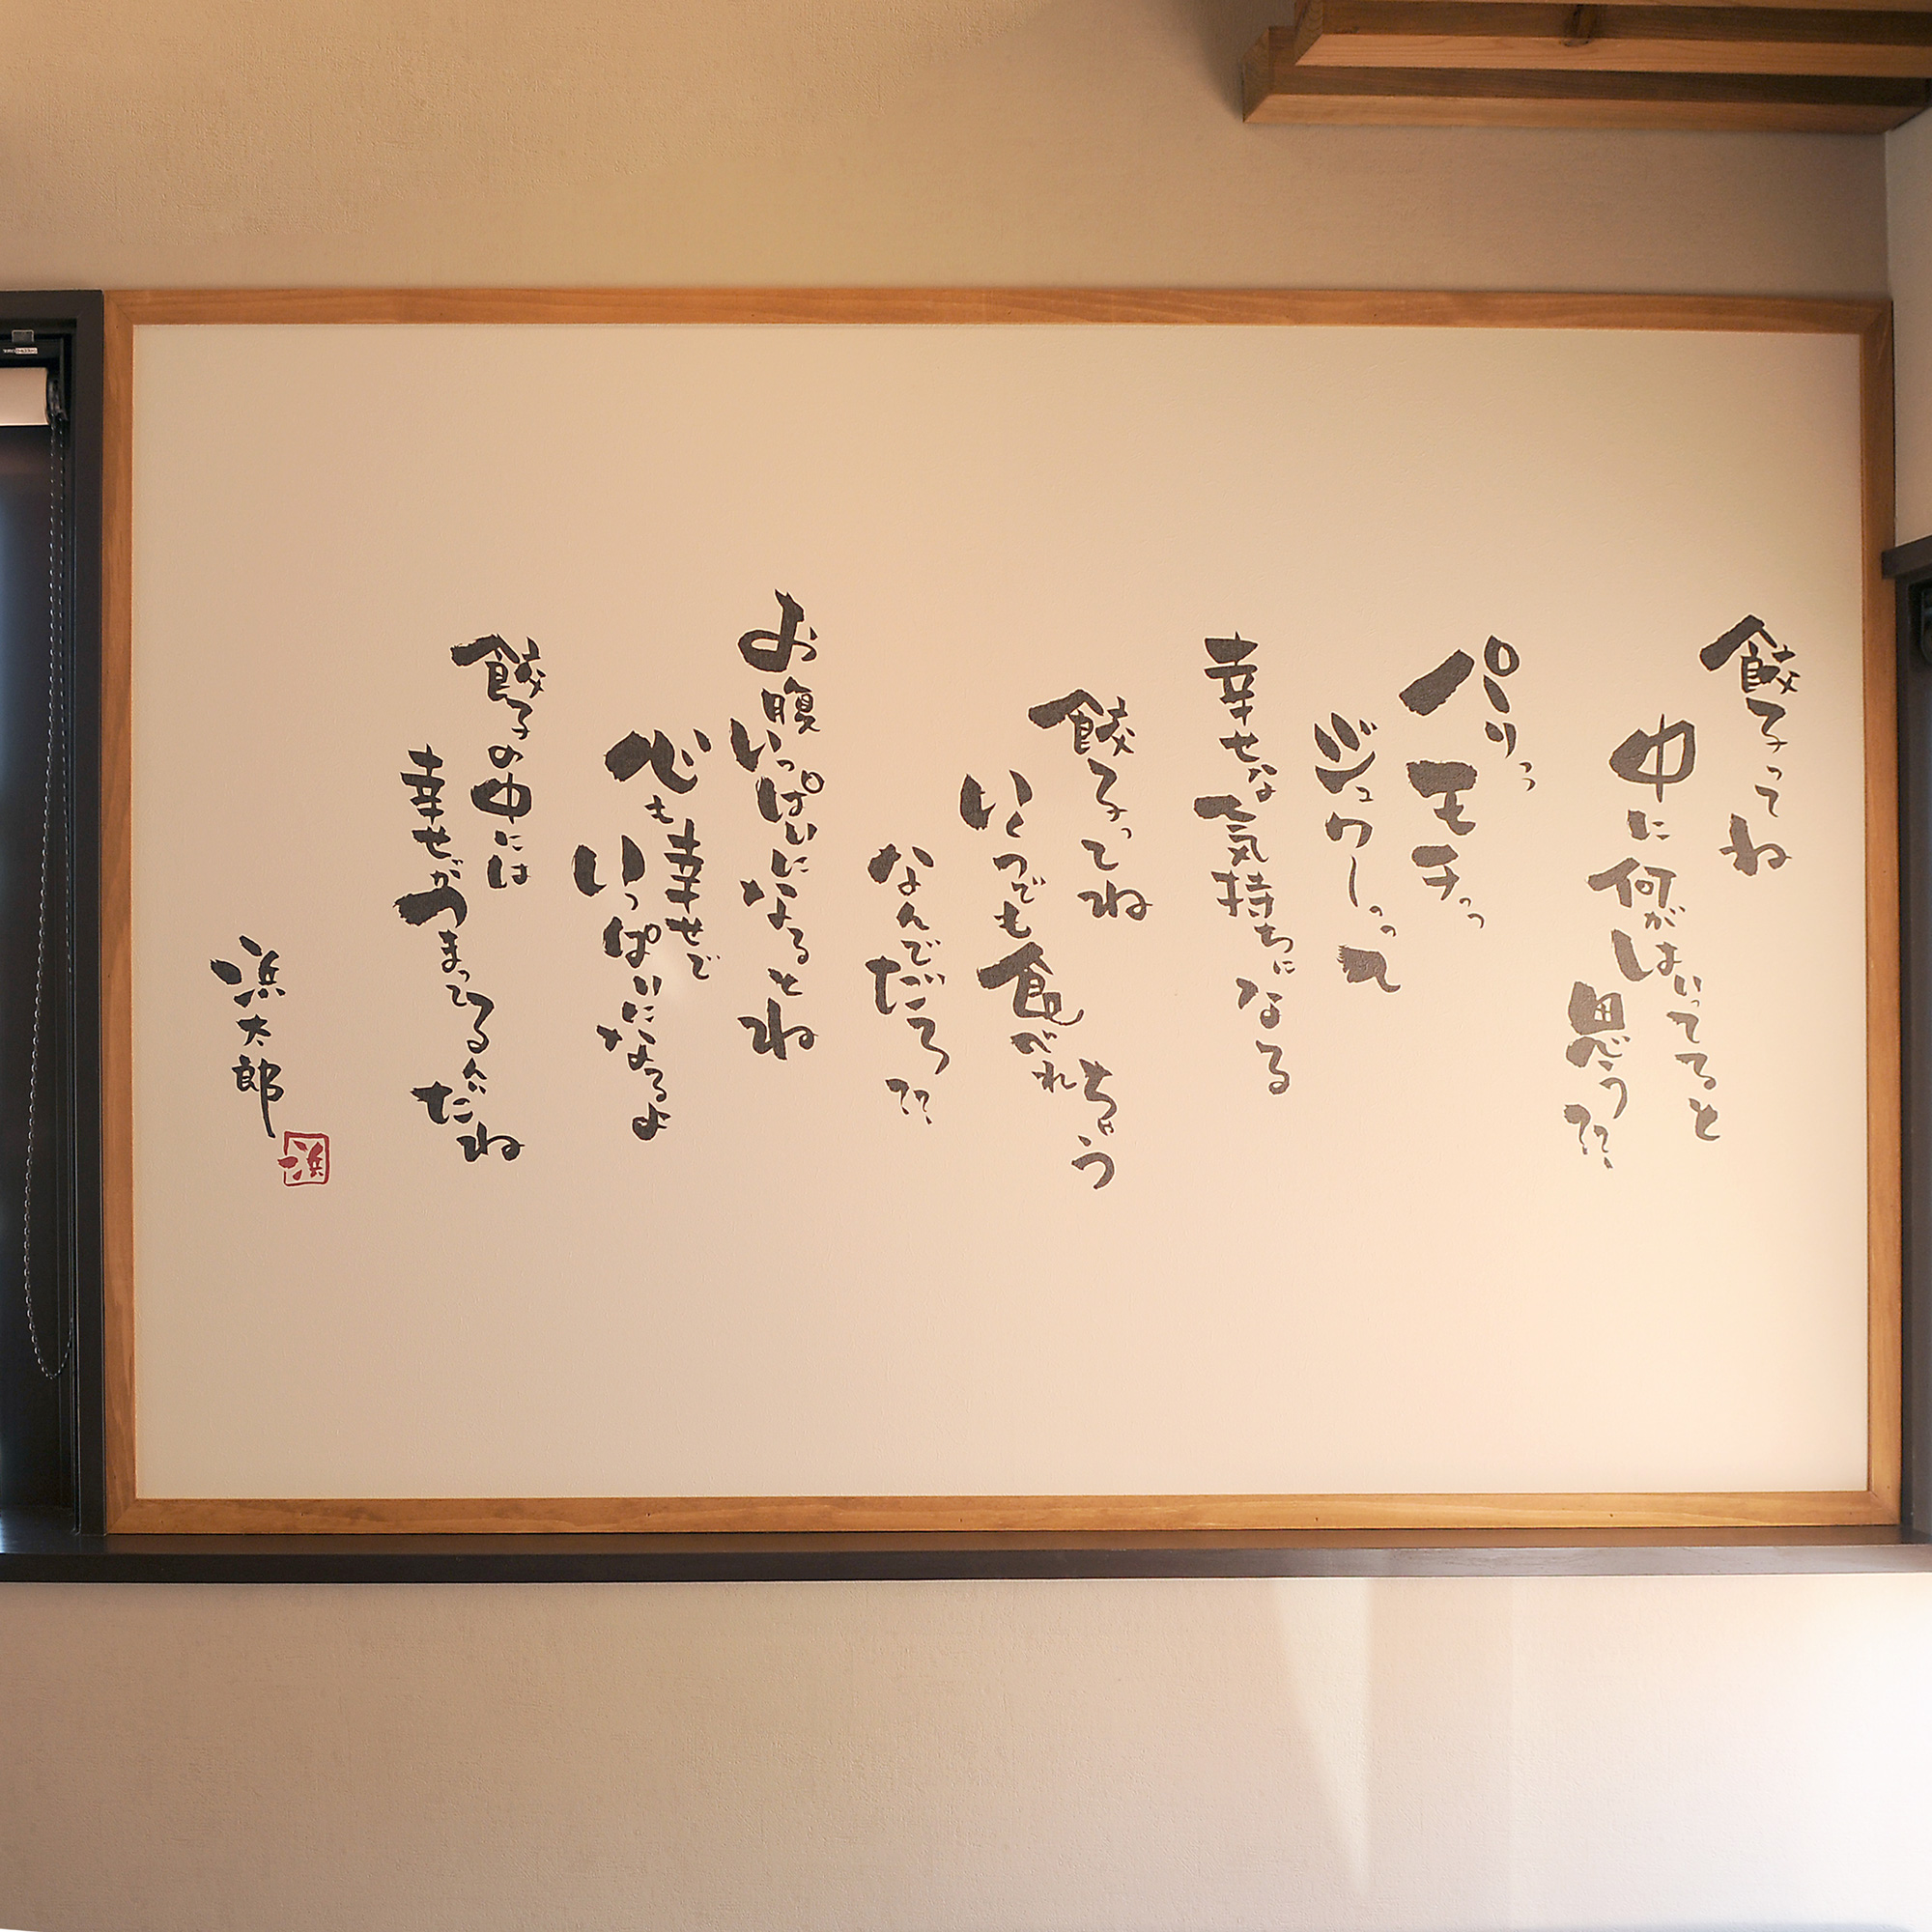 餃子ってね
中に何がはいってると
思う??
パリっっ
モチっっ
ジュワーっって
幸せな気持ちになる
餃子ってね
いくつでも食べれちゃう
なんでだろ??
お腹いっぱいになるとね
心も幸せで
いっぱいになるよ
餃子の中には
幸せがつまってるんだね
浜太郎
浜